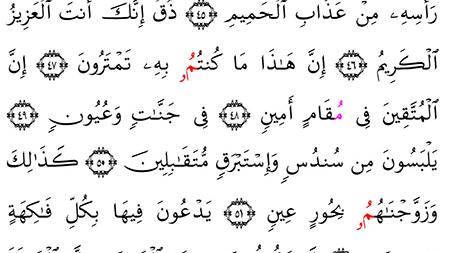 رَأْسِهِۦ مِنْ عَذَابِ اِ۬لْحَمِيمِ ۝٤٥ ذُقْ إِنَّكَ أَنتَ اَ۬لْعَزِيزُ
اُ۬لْكَرِيمُ ۝٤٦ إِنَّ هَٰذَا مَا كُنتُمُۥ بِهِۦ تَمْتَرُونَ ۝٤٧ إِنَّ
اَ۬لْمُتَّقِينَ فِى مُقَامٍ أَمِينٍ ۝٤٨ فِى جَنَّٰتٍ وَعُيُونٍ ۝٤٩
يَلْبَسُونَ مِن سُندُسٍ وَإِسْتَبْرَقٍ مُّتَقَٰبِلِينَ ۝٥٠ كَذَٰلِكَ
وَزَوَّجْنَٰهُمُۥ بِحُورٍ عِينٍ ۝٥١ يَدْعُونَ فِيهَا بِكُلِّ فَٰكِهَةٍ